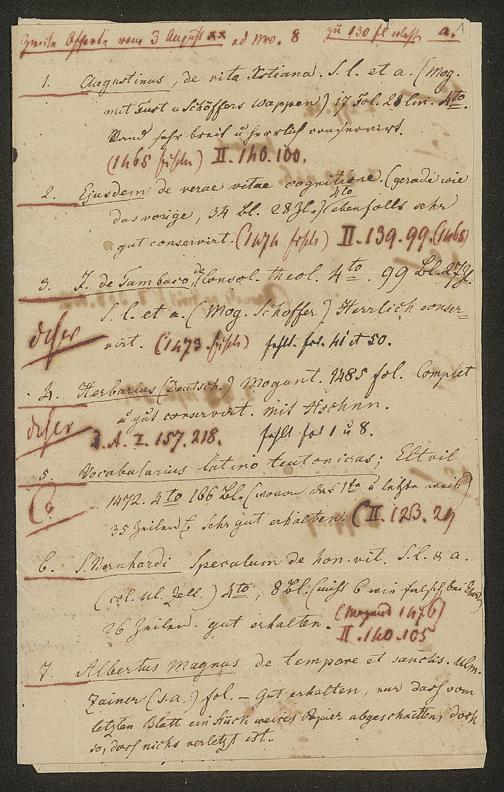 Zweite Offerte vom 3 August ad Nro. 8 zu 130 fl a. 1
1. Augustinus, de vita Xstiana. S. l. et a. (Mog.
mit Fust u Schöffers Wappen) 17 Fol. 28 lin. 4to.
Rand sehr breit u herrlich conservirt.
(1465 fehlt) II. 140.100.
2. Ejusdem de verae vitae cognitione. (gerade wie
das vorige, 34 Bl. 28 Zl.) 4to (ebenfalls sehr
gut conservirt. (1474 fehlt) II. 139.99. (1465)
3. J. de Tambaco, Consol. theol. 4to. 99 Bl. 27 Zl.
S. l. et a. (Mog. Schöffer) Herrlich conser-
virt. (1473 fehlt) fehlt fol. 41 et 50.
4. Herbarius (Deutsch.) Mogunt. 1485 fol. Complet
u gut conservirt. mit Hschnn.
A. I. 157.218. fehlt fol 1 u 8.
5. Vocabularius latino teutonicus; Eltvil
1472. 4to 166 Bl. (wovon das 1te u letzte weiß)
35 Zeilen. Sehr gut erhalten. (II. 123.29
6. S. Bernhardi Speculum de hon. vit. S. l. & a.
(col. Ul. Zell.) 4to, 8 Bl. (nicht 6 wie falsch bei
26 Zeilen. gut erhalten. (Mogunt 1476)
II. 140.105
7. Albertus Magnus de tempore et sanctis. Ulm.
Zainer (s.a.) fol. – Gut erhalten, nur daß vom
letzten Blatt ein Stück weißes Papier abgeschnitten, doch
so, daß nichts verletzt ist.